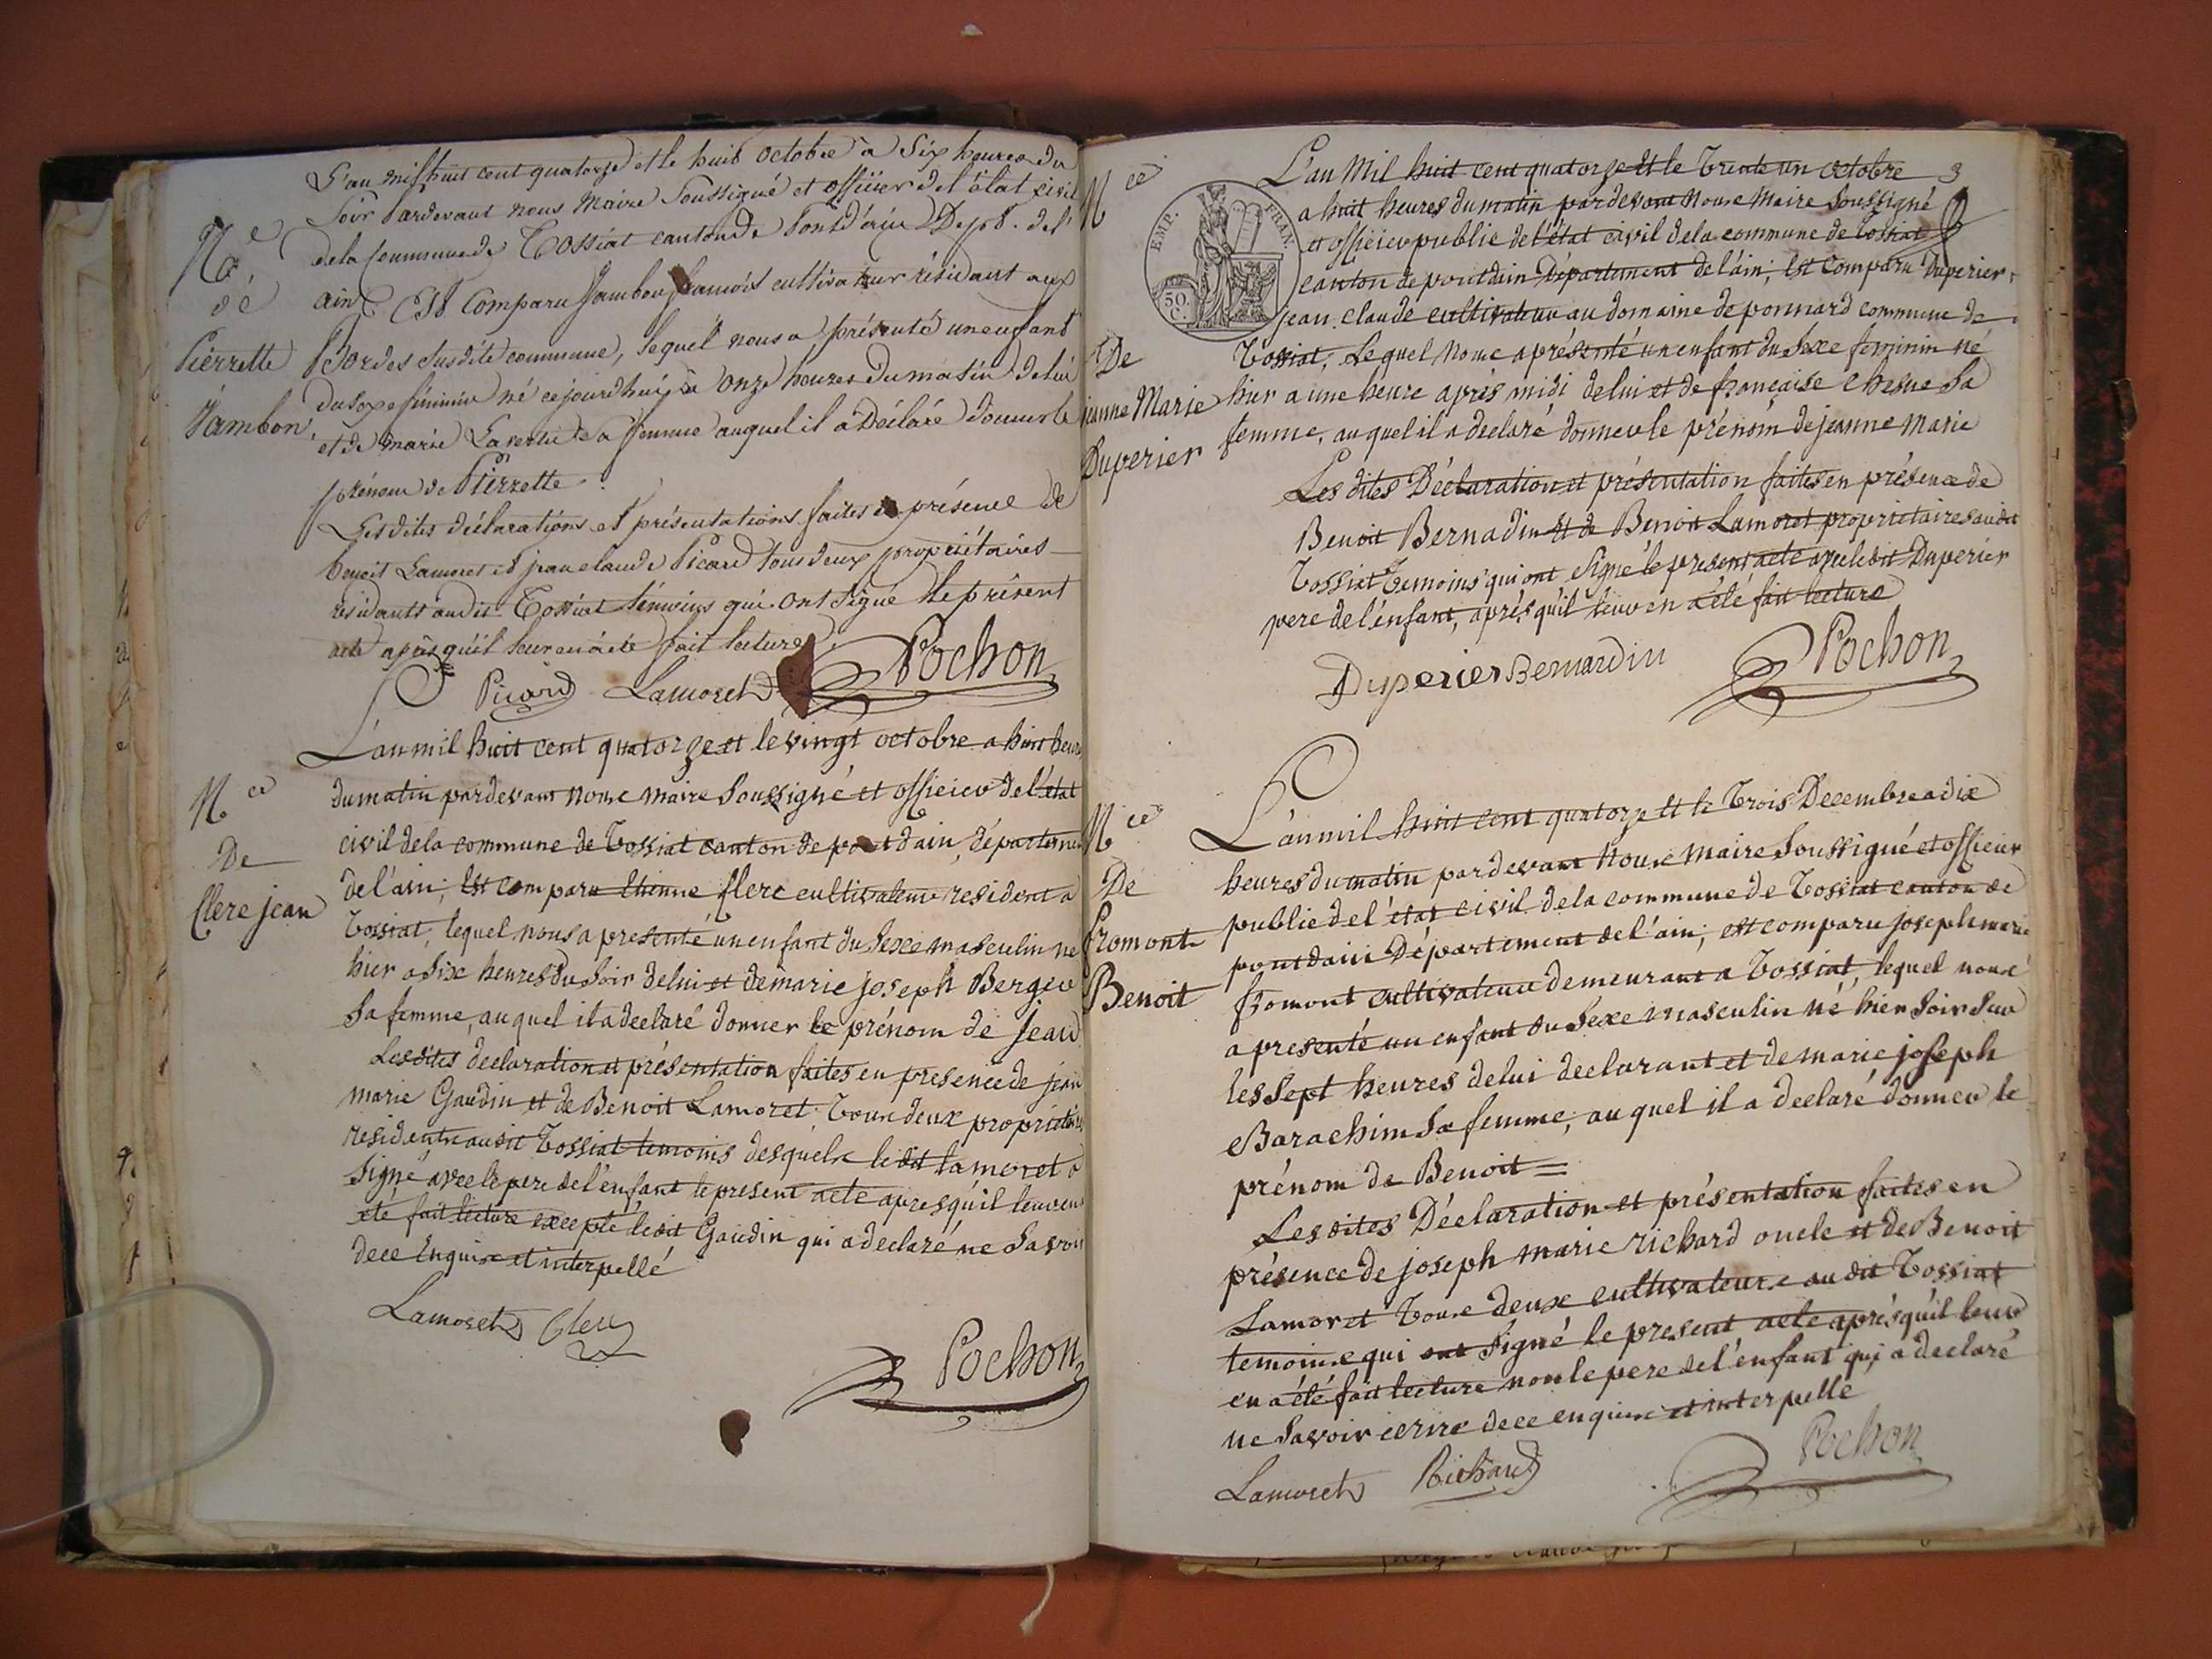 L'an mil huit cent quatorze et le huit octobre à Six heures du
Soir Pardevant nous Maire Soussigné et officier de l'état civil
Né.
de la Commune de Tossiat canton de Pont d'ain Dept. de l'
dé
ain Est Comparu Jambon francois cultivateur résidant aux
Pierrette
Bordes susdite commune, lequel nous a présenté un enfant
du sexe féminin né ce jourd'huy à onze heures du matin de lui
Jambon.
et de marie sa femme auquel il a Déclaré donner le
prénom de Pierrette.
Lesdites déclarations et présentations faites en présence de
benoit Lamoret et jean claude Picard tous deux propriétaires
résidants audit Tossiat témoins qui ont Signé le présent
acte après qu'il leur en a été fait lecture.
Picard Lamoret Pochon
L'an mil huit cent quatorze et le vingt octobre a huit heures
Nce
du matin pardevant nous maire Soussigné et officier de l'état
civil de la commune de Tossiat canton de pont dain, département
De
de l'ain; Est comparu Etienne Clerc cultivateur resident a
Clerc jean
Tossiat, lequel nous a presenté un enfant du Sexe masculin né
hier a Six heures du Soir de lui et de marie joseph Berger
Sa femme, au quel il a declaré donner le prénom de jean
Lesdites declaration et présentation faites en presence de jean
marie Gaudin et de Benoit Lamoret Tous deux propriétaires
residents audit Tossiat temoins desquels le dit Lamoret a
Signé avec le pere de l'enfant le present acte apres qu'il leur en a
été fait lecture excepté ledit Gaudin qui a declaré ne Savoir
de ce Enquis et interpellé
Lamoret Clerc
Pochon
L'an Mil huit cent quatorze et le Trente un octobre 3
Nce
a huit heures du matin pardevant Nous Maire Soussigné
EMP. FRAN.
et officier public de l'état civil de la commune de Tossiat
canton de pont dain Département de l'ain; Est Comparu Duperier
50 C.
jean claude cultivateur au domaine de ponnard commune de
De
Tossiat; Lequel Nous a présenté un enfant du Sexe feminin né
jeanne Marie
hier a une heure après midi de lui et de francaise Chesne Sa
femme, au quel il a declaré donner le prénom de jeanne Marie
Duperier
Les dites Déclaration et présentation faites en présence de
Benoit Bernadin et de Benoit Lamoret proprietaires au dit
Tossiat Temoins qui ont Signé le present acte avec ledit Duperier
pere de l'enfant, après qu'il leur en a été fait lecture
Duperier Bernardin Pochon
L'an mil huit cent quatorze et le Trois Decembre a dix
Nce
heures du matin pardevant Nous Maire Soussigné et officier
De
public de l'état civil de la commune de Tossiat canton de
fromont
pont dain Département de l'ain; est comparu joseph marie
Benoit
fromont cultivateur demeurant a Tossiat, lequel nous
a presenté un enfant du Sexe masculin né hier Soir Sur
les Sept heures de lui declarant et de marie joseph
Barachim Sa femme; au quel il a declaré donner le
prénom de Benoit =
Lesdites Déclaration et présentation faites en
présence de joseph marie richard oncle et de Benoit
Lamoret Tous deux cultivateurs au dit Tossiat
temoins qui ont Signé le present acte après qu'il leur
en a été fait lecture non le pere de l'enfant qui a declaré
ne Savoir ecrire de ce enquis et interpellé
Lamoret Richard Pochon